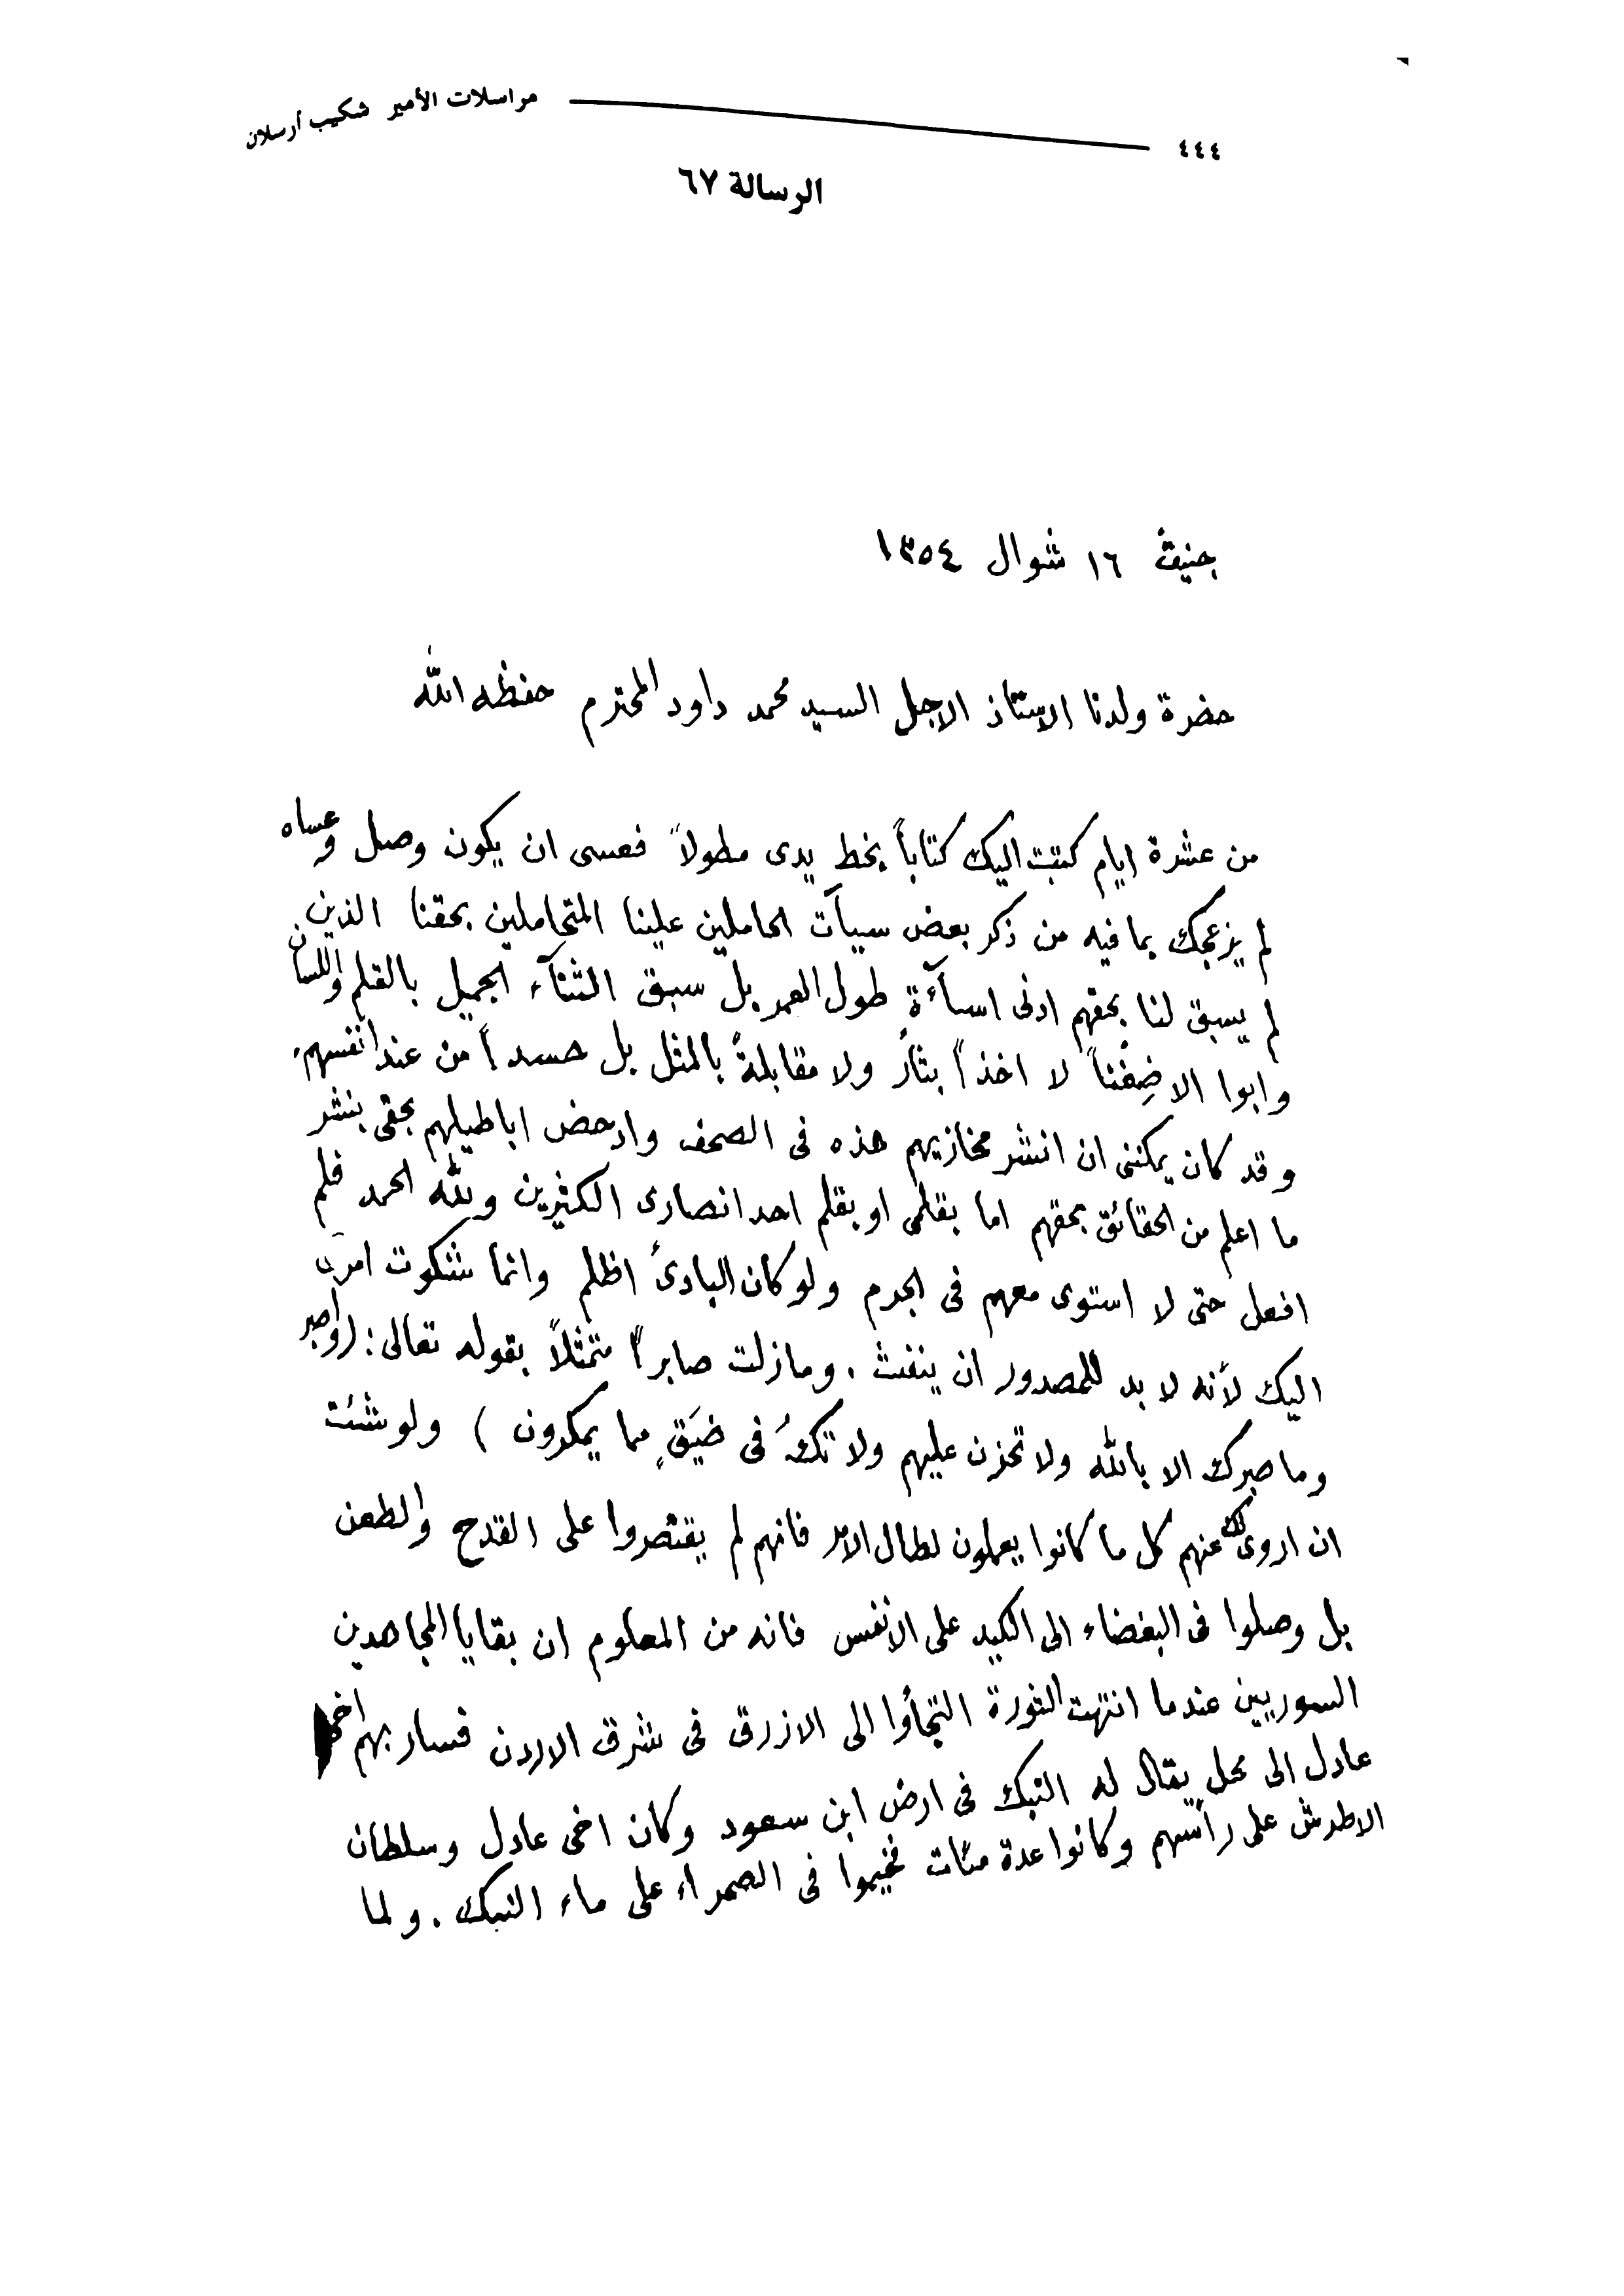 ٤٤٤ مراسلات الأمير شكيب أرسلان
الرسالة ٦٧
جنيف ١٦ شوال ١٣٥٤
حضرة ولدنا الاستاذ الاجل السيد محمد داود المحترم حفظه الله
من عشرة ايام كتبت اليك كتاباً بخط يدى مطولاً فعسى ان يكون وصل وعساه
لم يزعجك بما فيه من ذكر بعض سيآت الحاملين علينا المتحاملين بحقنا الذين
لم يسبق لنا بحقهم ادنى اسآءة طول العمر بل سبق الثنآء الجميل بالقلم واللسان
وابوا الا ضِغْناً لا اخذاً بثأر ولا مقابلةً بالمثل بل حسداً من عند انفسهم.
وقد كان يمكننى ان انشر مخازيهم هذه فى الصحف وادحض اباطيلهم بحقى بنشر
ما اعلم من الحقائق بحقهم اما بقلمى او بقلم احد انصارى الكثيرين ولله الحمد فلم
افعل حتى لا استوى معهم فى الجرم ولو كان البادئ اظلم وانما شكوت امرى
اليك لأنه لا بد للمصدور ان ينفث . وما زلت صابراً متمثلاً بقوله تعالى : (واصبر
وما صبرك الا بالله ولا تحزن عليهم ولا تكُ فى ضَيَقٍ مما يمكرون ) ولو شئت
ان اروى لك عنهم كل ما كانوا يعملون لطال الامر فانهم لم يقتصروا على القدح والطعن
بل وصلوا فى البغضاء الى الكيد على الانفس فانه من المعلوم ان بقايا المجاهدين
السوريين عندما انتهت الثورة التجأوا الى الازرق فى شرق الاردن فسار بهم اخى
عادل الى محل يقال له النبك فى ارض ابن سعود وكان اخى عادل وسلطان
الاطرش على رأسهم وكانوا عدة مئات فخيموا فى الصحراء على ماء النبك . ولما